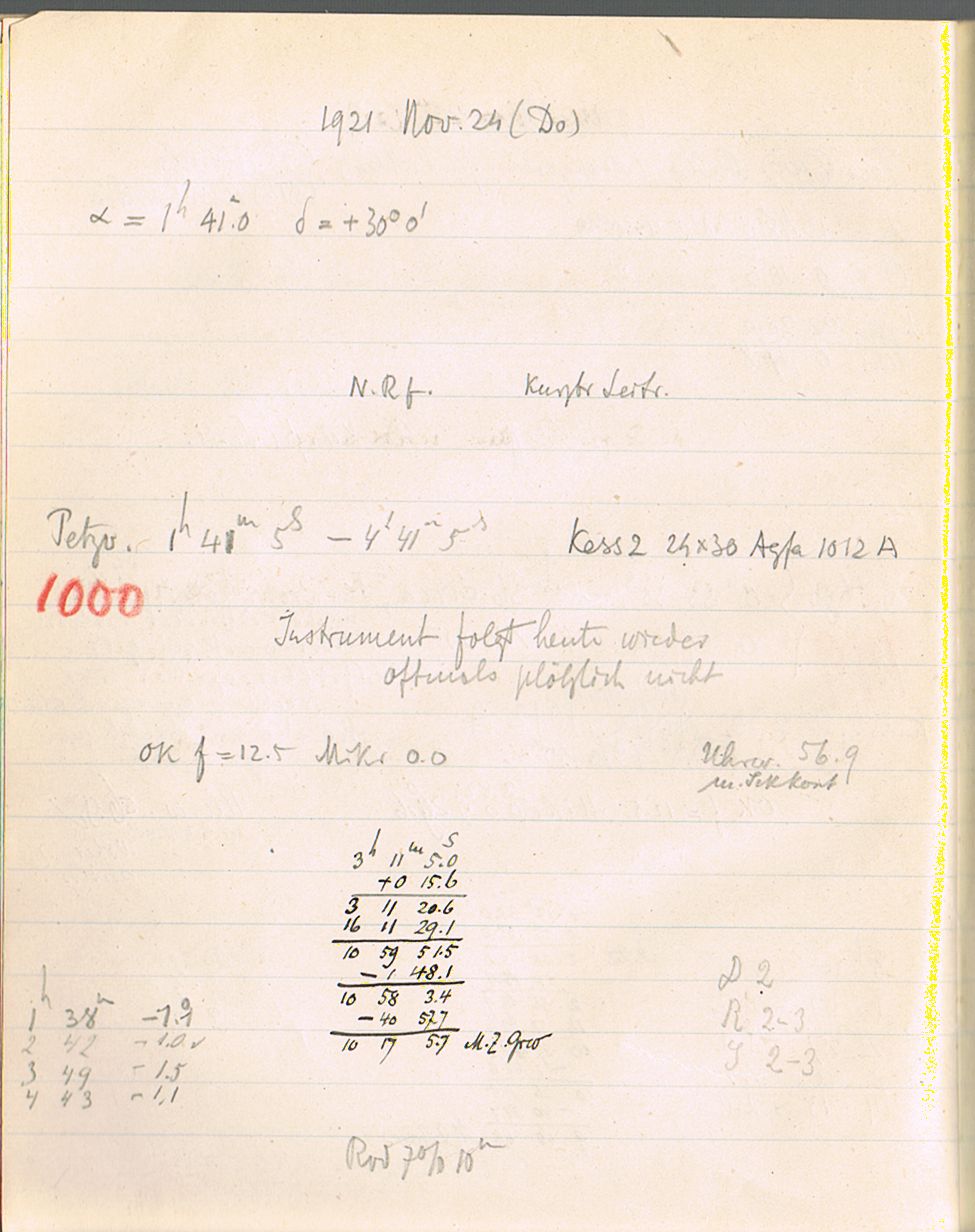 1921 Nov. 24 (Do)
α = 1h 41m.0 δ = +30° 0'
N.Rf.
Petzv. 1h 41m 5s – 4h 41m 5s Kass 2 24×30 Agfa 1012 A
1000
Instrument folgt heute wieder
oftmals plötzlich nicht
OK f = 12.5 Mikr 0.0 Uhrw. 56.9
m. Sekkont
3h 11m 5.0s
+0 15.6
3 11 20.6
16 11 29.1
10 59 51.5
– 1 48.1
10 58 3.4
– 40 57.7
10 17 5.7 M.Z. Grw
D 2
R 2–3
J 2–3
1h 38m
2 42 –1.0
3 49 –1.5
4 43 –1.1
Rod 7% 10m